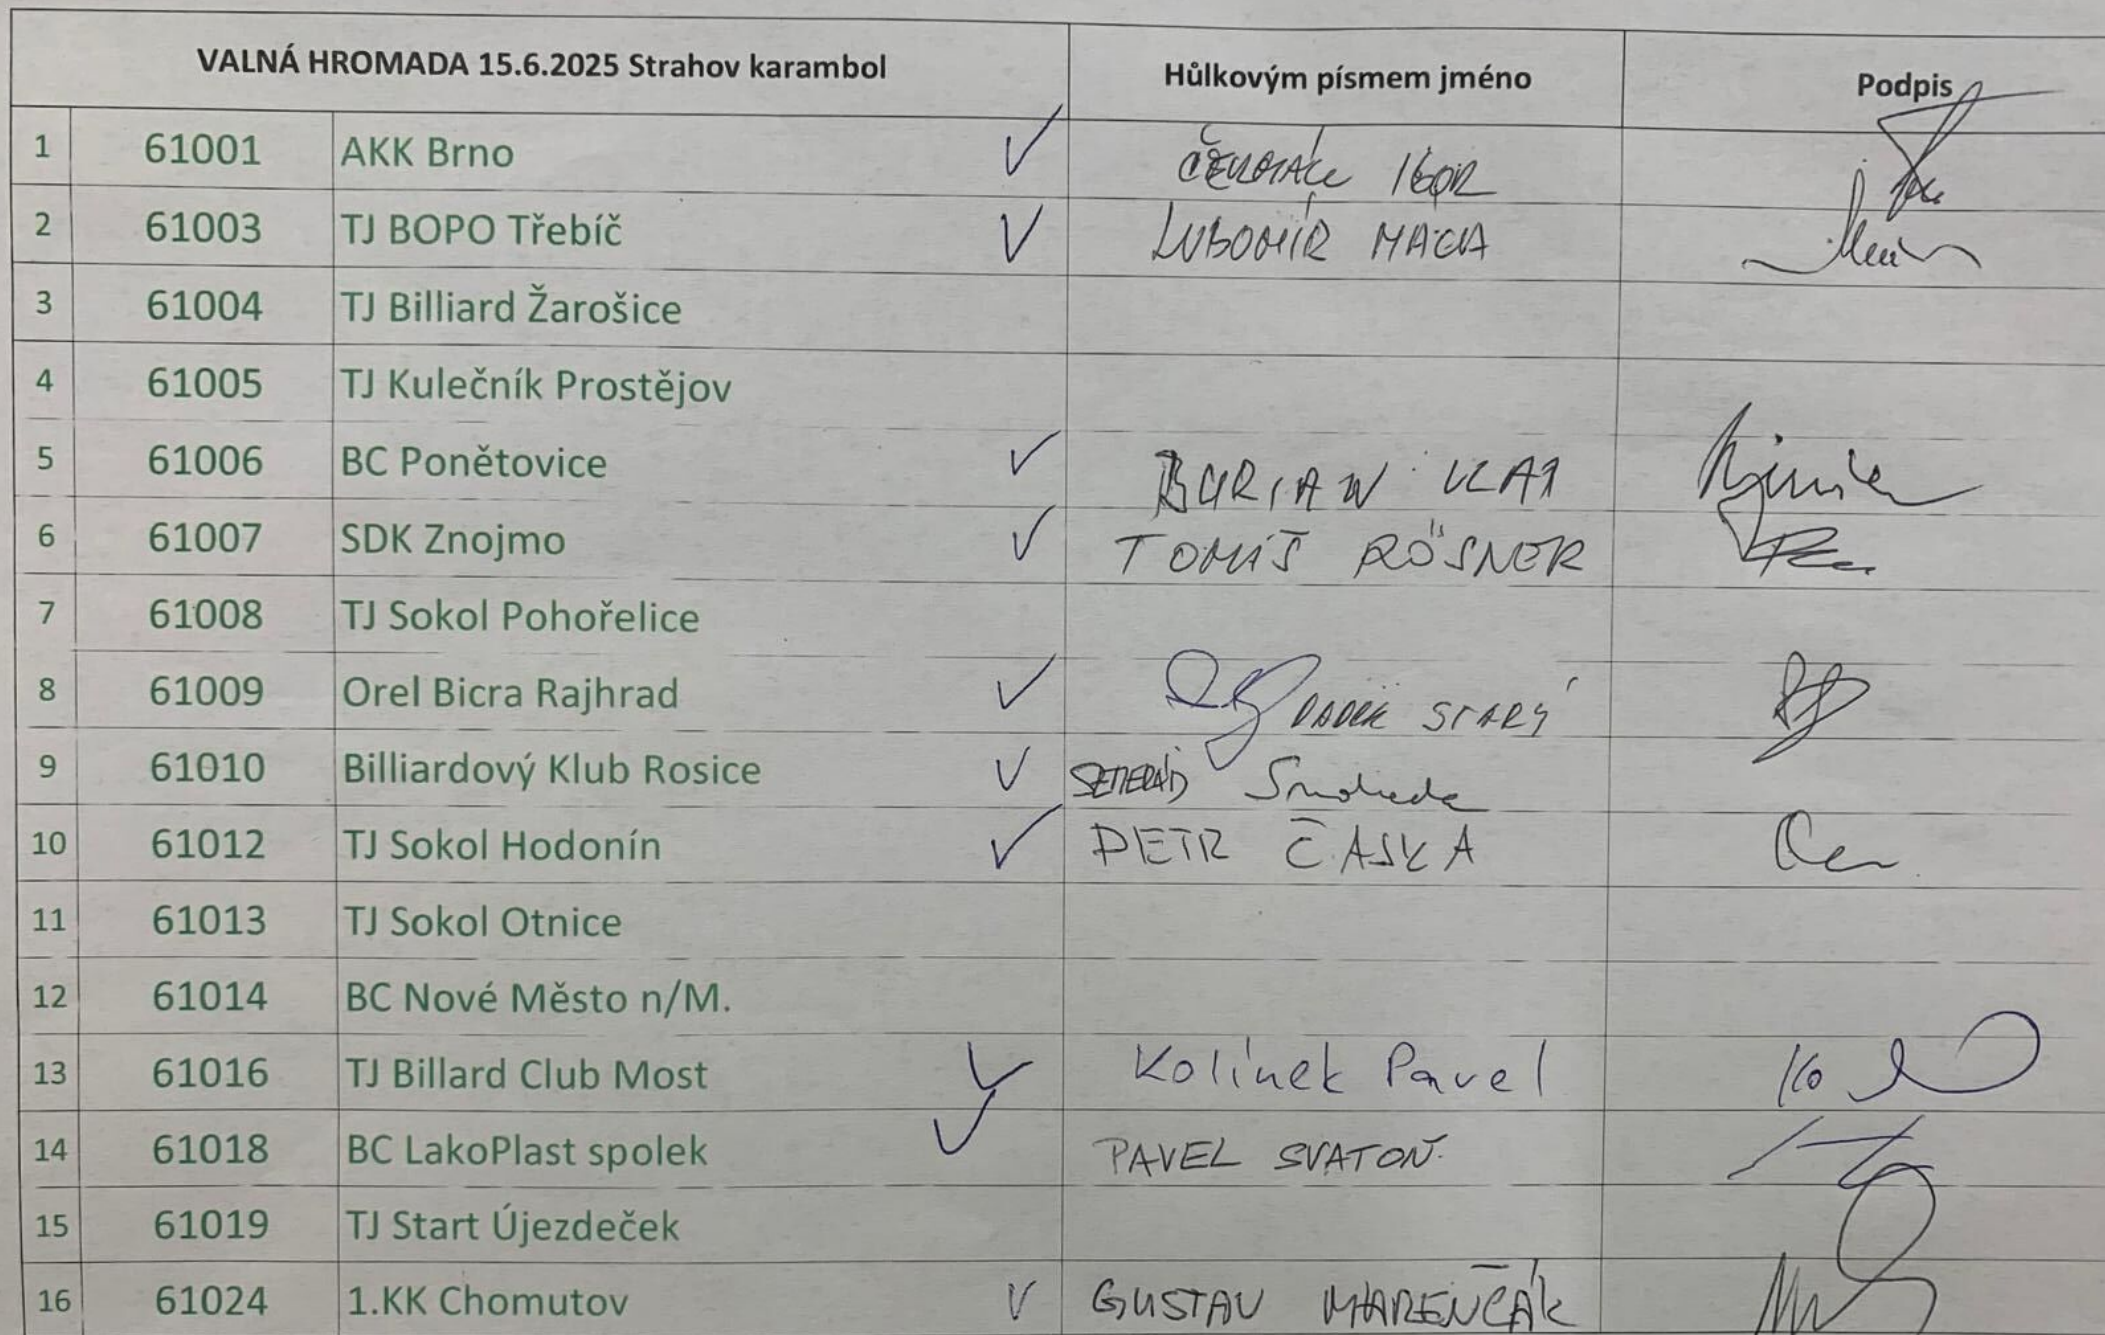 VALNÁ HROMADA 15.6.2025 Strahov karambol Hůlkovým písmem jméno Podpis
1 61001 AKK Brno IGOR
2 61003 TJ BOPO Třebíč LUBOMÍR MACA
3 61004 TJ Billiard Žarošice
4 61005 TJ Kulečník Prostějov
5 61006 BC Ponětovice BURIAN
6 61007 SDK Znojmo TOMÁŠ RÖSNER
7 61008 TJ Sokol Pohořelice
8 61009 Orel Bicra Rajhrad STARÝ
9 61010 Billiardový Klub Rosice
10 61012 TJ Sokol Hodonín PETR ČÁSKA
11 61013 TJ Sokol Otnice
12 61014 BC Nové Město n/M.
13 61016 TJ Billard Club Most Kolínek Pavel
14 61018 BC LakoPlast spolek PAVEL SVATOŇ
15 61019 TJ Start Újezdeček
16 61024 1.KK Chomutov GUSTAV MARENČÁK